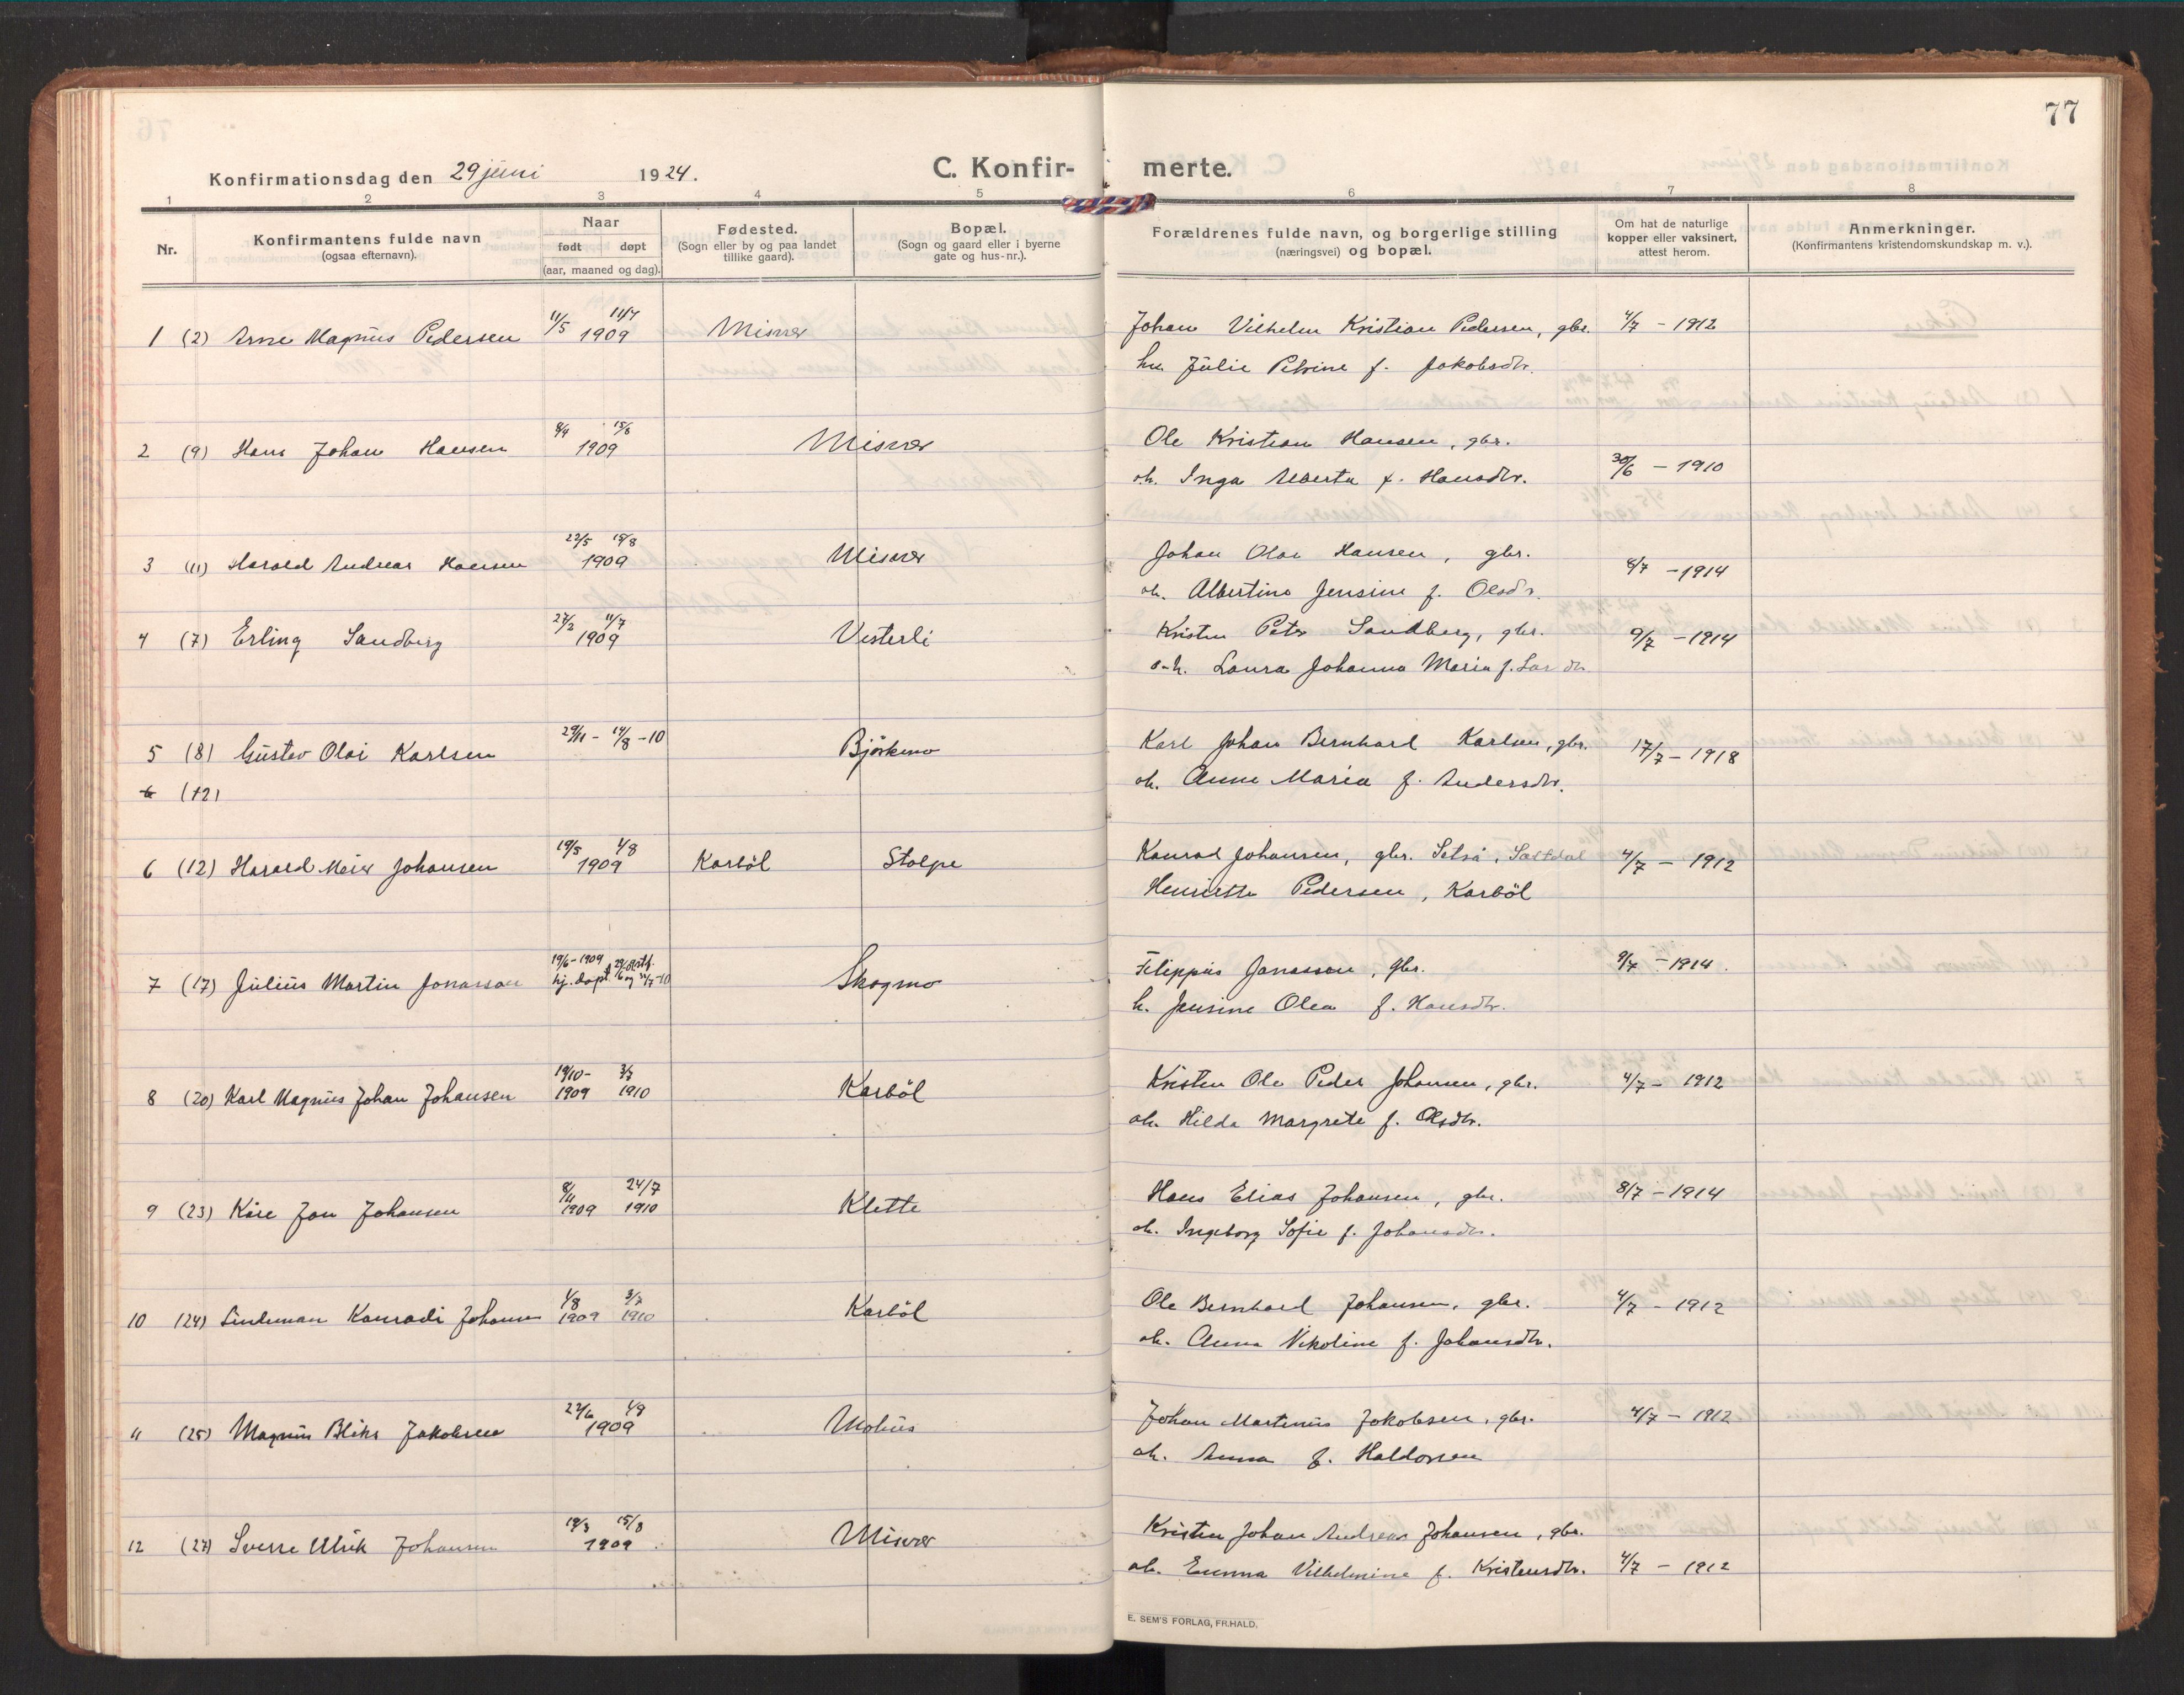 77
Konfirmationsdag den 29 juni 1924.
C. Konfir- merte.
1 2 3 4 5 6 7 8
Nr.
Konfirmantens fulde navn
(ogsaa efternavn).
Naar
født døpt
(aar, maaned og dag).
Fødested.
(Sogn eller by og paa landet
tillike gaard).
Bopæl.
(Sogn og gaard eller i byerne
gate og hus-nr.).
Forældrenes fulde navn, og borgerlige stilling
(næringsvei) og bopæl.
Om hat de naturlige
kopper eller vaksinert,
attest herom.
Anmerkninger.
(Konfirmantens kristendomskundskap m. v.).
1 (2) Arne Magnus Pedersen 11/5 11/7 1909 Misvær Johan Vilhelm Kristian Pedersen, gbr. 4/7 - 1912
hu. Julie Petrine f. Jakobsdtr.
2 (9) Hans Johan Hansen 8/4 15/8 1909 Misvær Ole Kristian Hansen, gbr.
o.h. Inga Alberta f. Hansdtr. 30/6 - 1910
3 (11) Harald Andreas Hansen 22/5 15/8 1909 Misvær Johan Olai Hansen, gbr. 8/7 - 1914
oh. Albertine Jensine f. Olsdtr.
4 (7) Erling Sandberg 27/2 11/7 1909 Vesterli Kristen Peter Sandberg, gbr. 9/7 - 1914
o.h. Laura Johanna Maria f. Larsdtr.
5 (8) Gustav Olai Karlsen 29/11 - 14/8 - 10 Bjørkmo Karl Johan Bernhard Karlsen, gbr. 17/7 - 1918
oh. Anne Maria f. Andersdtr.
6 (12)
6 (12) Harald Meier Johansen 19/5 1/8 1909 Karbøl Stolpe Konrad Johansen, gbr. Setså, Saltdal 4/7 - 1912
Henriette Pedersen, Karbøl
7 (17) Julius Martin Jonassen 19/6 - 1909 Skogmo Filippus Jonassen, gbr. 9/7 - 1914.
hj. døpt
h. Jensine Olea f. Hansdtr.
8 (20) Karl Magnus Johan Johansen 19/10 - 1909 3/7 1910 Karbøl Kristen Ole Peder Johansen, gbr. 4/7 - 1912
oh. Hilda Margrete f. Olsdtr.
9 (23) Kåre Jon Johansen 8/11 1909 24/7 1910 Klette Hans Elias Johansen, gbr. 8/7 - 1914
oh. Ingeborg Sofie f. Johansdtr.
10 (24) Lindeman Konradi Johansen 1/8 1909 3/7 1910 Karbøl Ole Bernhard Johansen, gbr. 4/7 - 1912
oh. Anna Nikoline f. Johansdtr.
11 (25) Magnus Bliks Jakobsen 22/6 1/8 1909 Mohus Johan Martinus Jakobsen, gbr. 4/7 - 1912
oh. Anna f. Haldorsen
12 (27) Sverre Ulrik Johansen 19/3 15/8 1909 Misvær Kristen Johan Andreas Johansen, gbr.
oh. Emma Vilhelmine f. Kristensdtr. 4/7 - 1912
E. SEM'S FORLAG, FR.HALD.